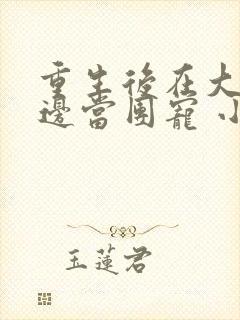 重生後在大
邊當團寵 小
玉蓮君